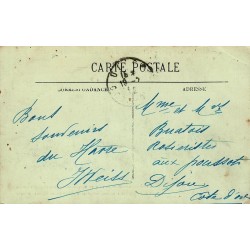 CARTE POSTALE
CORRESPONDANCE
ADRESSE
Bons
Souvenirs
du Havre
Weiss
Mme et Mos
Buatois
aux poussots
Dijon
Cote d'or